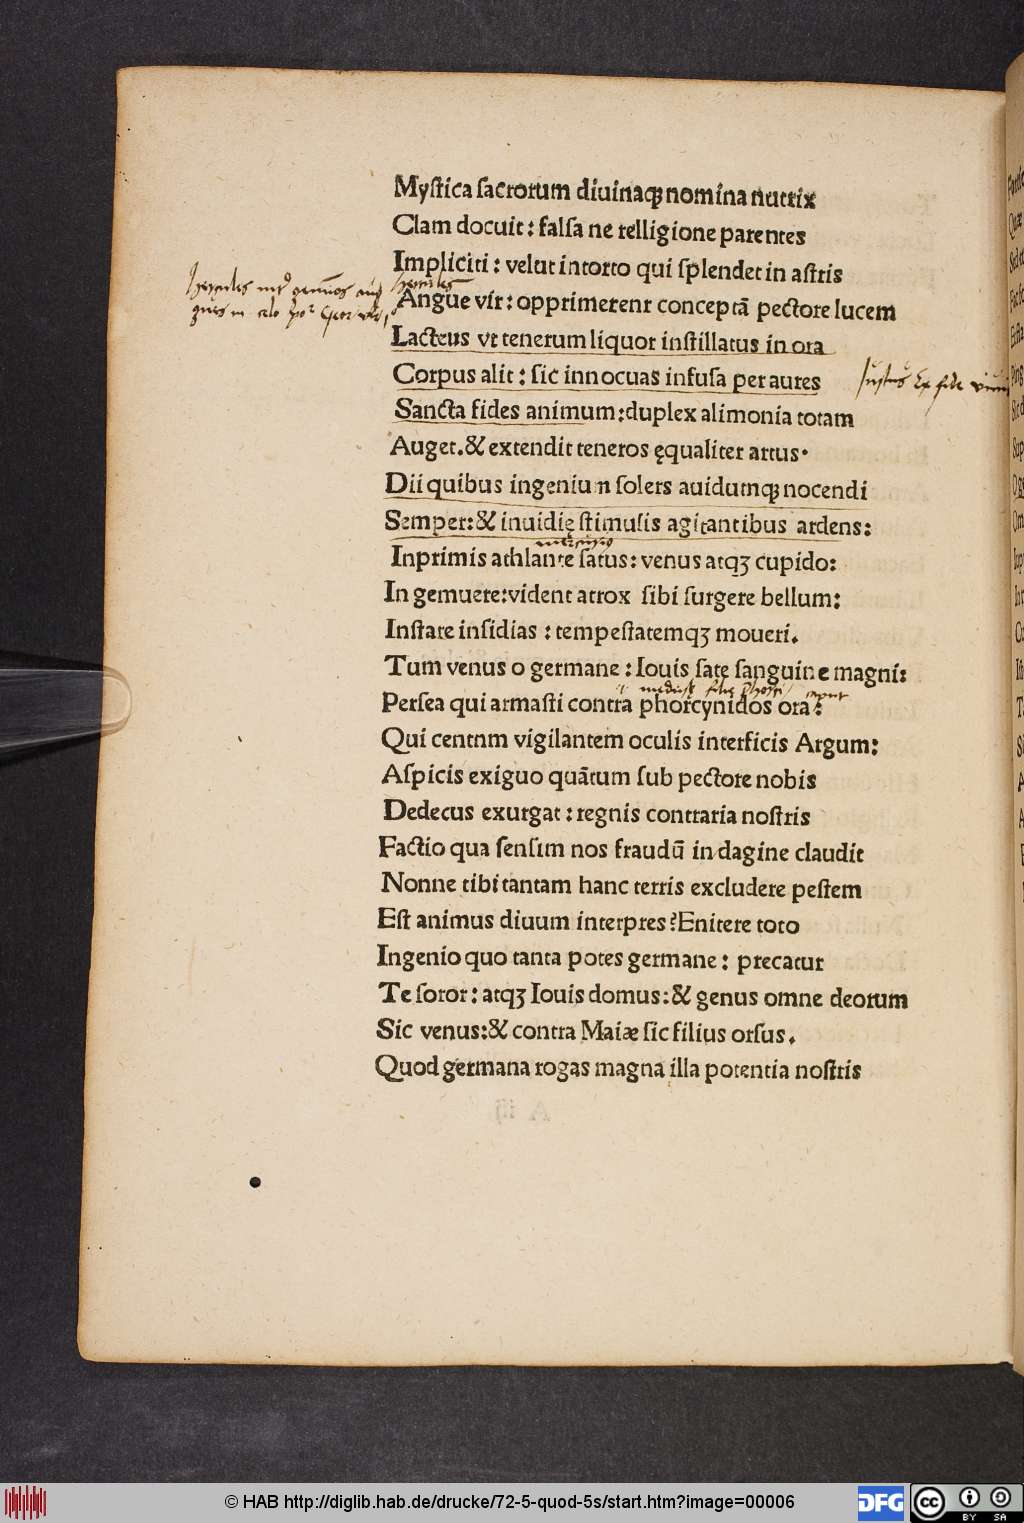 Mystica sacrorum diuinaq; nomina nutrix
Clam docuit: falsa ne relligione parentes
Impliciti: velut intorto qui splendet in astris
Hercules
Angue vir: opprimerent conceptā pectore lucem
Lacteus vt tenerum liquor instillatus in ora
Corpus alit: sic innocuas infusa per aures
Sancta fides animum: duplex alimonia totam
Auget. & extendit teneros ęqualiter artus.
Dii quibus ingenium solers auidumq; nocendi
Semper: & inuidię stimulis agitantibus ardens:
mercurio
Inprimis athlante satus: venus atq; cupido:
In gemuere: vident atrox sibi surgere bellum:
Instare insidias: tempestatemq; moueri.
Tum venus o germane: Iouis sate sanguine magni:
Persea qui armasti contra phorcynidos ora:
Qui centnm vigilantem oculis interficis Argum:
Aspicis exiguo quātum sub pectore nobis
Dedecus exurgat: regnis contraria nostris
Factio qua sensim nos fraudū indagine claudit
Nonne tibi tantam hanc terris excludere pestem
Est animus diuum interpres? Enitere toto
Ingenio quo tanta potes germane: precatur
Te soror: atq; Iouis domus: & genus omne deorum
Sic venus: & contra Maiæ sic filius orsus.
Quod germana rogas magna illa potentia nostris
© HAB http://diglib.hab.de/drucke/72-5-quod-5s/start.htm?image=00006
DFG
cc BY SA